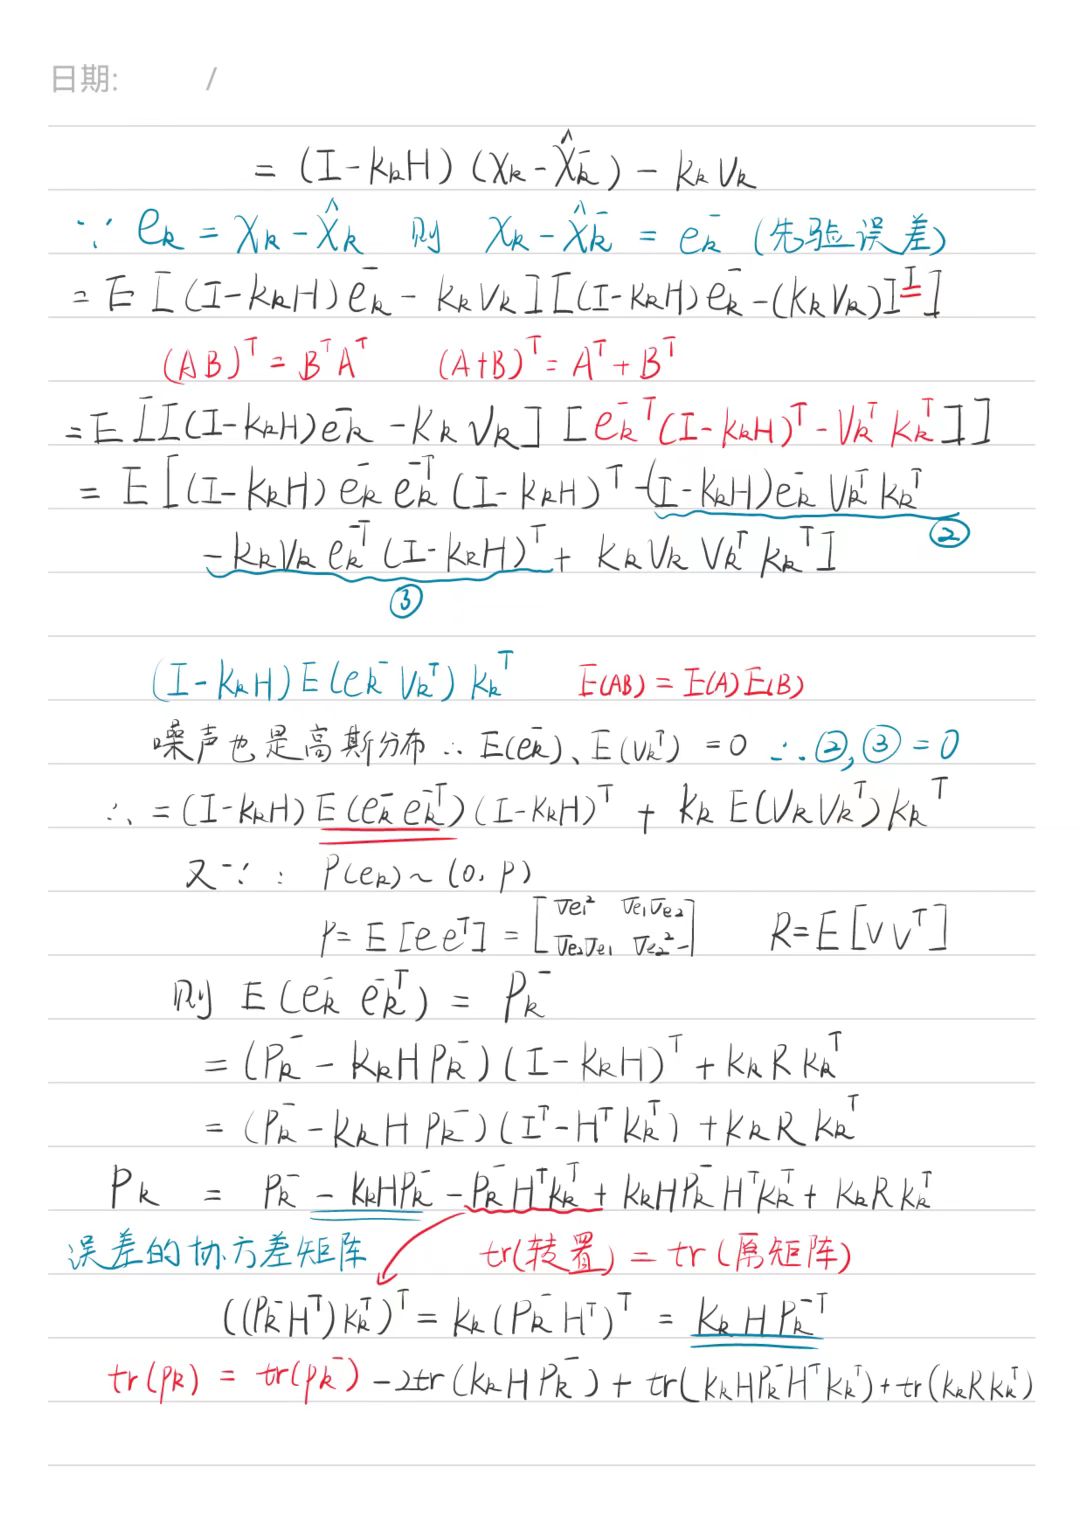 日期: /
= (I-KₖH)(Xₖ-X̂ₖ⁻) - KₖVₖ
∵ eₖ = Xₖ-X̂ₖ 则 Xₖ-X̂ₖ⁻ = eₖ⁻ (先验误差)
= E[(I-KₖH)eₖ⁻ - KₖVₖ][(I-KₖH)eₖ⁻-(KₖVₖ)]ᵀ]
(AB)ᵀ = BᵀAᵀ (A+B)ᵀ = Aᵀ+Bᵀ
= E[[(I-KₖH)eₖ⁻ - KₖVₖ][eₖ⁻ᵀ(I-KₖH)ᵀ - VₖᵀKₖᵀ]]
= E[(I-KₖH)eₖ⁻eₖ⁻ᵀ(I-KₖH)ᵀ - (I-KₖH)eₖ⁻VₖᵀKₖᵀ ②
- KₖVₖeₖ⁻ᵀ(I-KₖH)ᵀ + KₖVₖVₖᵀKₖᵀ]
③
(I-KₖH)E(eₖ⁻Vₖᵀ)Kₖᵀ E(AB) = E(A)E(B)
噪声也是高斯分布 ∴ E(eₖ⁻)、E(Vₖᵀ) = 0 ∴ ②,③ = 0
∴ = (I-KₖH)E(eₖ⁻eₖ⁻ᵀ)(I-KₖH)ᵀ + KₖE(VₖVₖᵀ)Kₖᵀ
又∵: P(eₖ)~(0, P)
P = E[eeᵀ] = [σe₁² σe₁σe₂ R = E[VVᵀ]
σe₂σe₁ σe₂²]
则 E(eₖ⁻eₖ⁻ᵀ) = Pₖ⁻
= (Pₖ⁻ - KₖHPₖ⁻)(I-KₖH)ᵀ + KₖRKₖᵀ
= (Pₖ⁻ - KₖHPₖ⁻)(Iᵀ-HᵀKₖᵀ) + KₖRKₖᵀ
Pₖ = Pₖ⁻ - KₖHPₖ⁻ - Pₖ⁻HᵀKₖᵀ + KₖHPₖ⁻HᵀKₖᵀ + KₖRKₖᵀ
误差的协方差矩阵 tr(转置) = tr(原矩阵)
((Pₖ⁻Hᵀ)Kₖᵀ)ᵀ = Kₖ(Pₖ⁻Hᵀ)ᵀ = KₖHPₖ⁻ᵀ
tr(Pₖ) = tr(Pₖ⁻) - 2tr(KₖHPₖ⁻) + tr(KₖHPₖ⁻HᵀKₖᵀ) + tr(KₖRKₖᵀ)